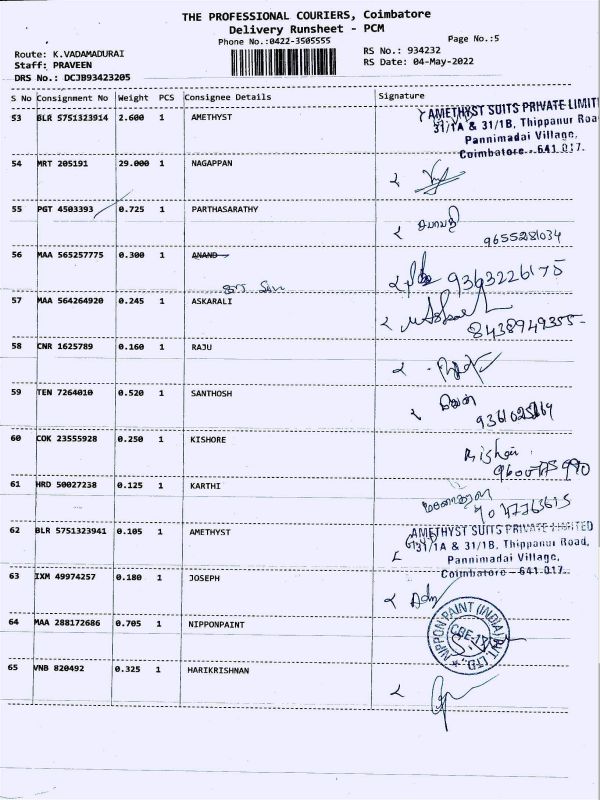 THE PROFESSIONAL COURIERS, Coimbatore
Delivery Runsheet - PCM
Phone No.:0422-3505555 Page No.:5
Route: K.VADAMADURAI RS No.: 934232
Staff: PRAVEEN RS Date: 04-May-2022
DRS No.: DCJB93423205
S No Consignment No Weight PCS Consignee Details Signature
53 BLR 5751323914 2.600 1 AMETHYST
AMETHYST SUITS PRIVATE LIMIT
31/1A & 31/1B, Thippanur Roa
Pannimadai Village,
Coimbatore - 641 017.
54 MRT 205191 29.000 1 NAGAPPAN
55 PGT 4503393 0.725 1 PARTHASARATHY
9655281034
56 MAA 565257775 0.300 1 ANAND
9363226175
57 MAA 564264920 0.245 1 ASKARALI
8438949355
58 CNR 1625789 0.160 1 RAJU
59 TEN 7264010 0.520 1 SANTHOSH
60 COK 23555928 0.250 1 KISHORE
61 HRD 50027238 0.125 1 KARTHI
62 BLR 5751323941 0.105 1 AMETHYST
AMETHYST SUITS PRIVATE LIMITED
31/1A & 31/1B, Thippanur Road,
Pannimadai Village,
Coimbatore - 641 017.
63 IXM 49974257 0.180 1 JOSEPH
64 MAA 288172686 0.705 1 NIPPONPAINT
NIPPON PAINT (INDIA) PVT. LTD.
65 VNB 820492 0.325 1 HARIKRISHNAN